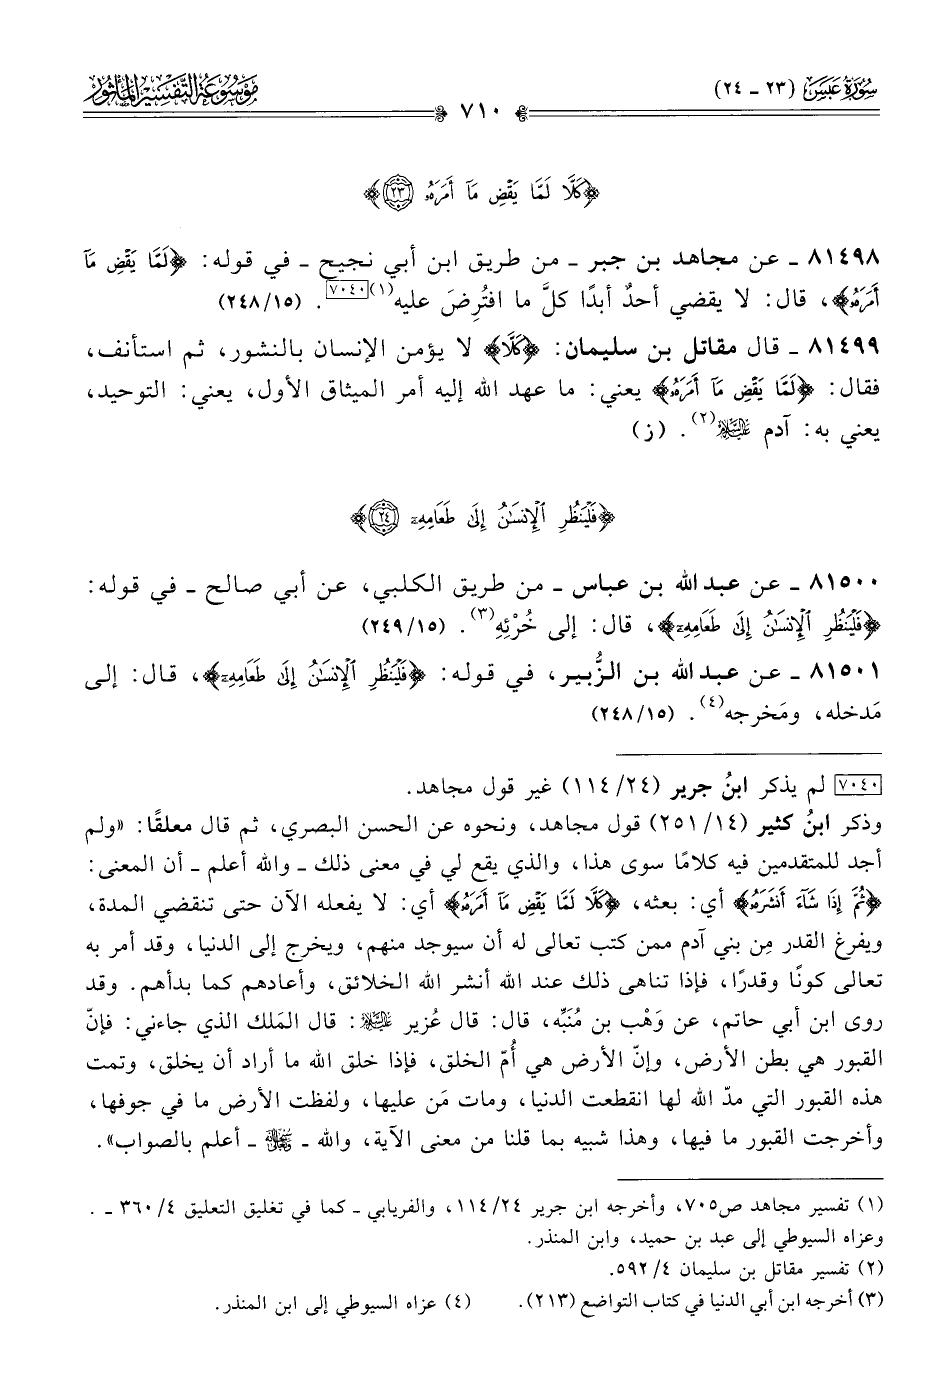 سُورَةُ عَبَسَ (٢٣ - ٢٤)
٧١٠
مَوْسُوعَةُ التَّفْسِيرِ المَأْثُورِ
﴿كَلَّا لَمَّا يَقْضِ مَآ أَمَرَهُۥ ۝٢٣﴾
٨١٤٩٨ ـ عن مجاهد بن جبر ـ من طريق ابن أبي نجيح ـ في قوله: ﴿لَمَّا يَقْضِ مَآ
أَمَرَهُۥ﴾، قال: لا يقضي أحدٌ أبدًا كلَّ ما افتُرِضَ عليه(١)[٧٠٤٠]. (١٥/٢٤٨)
٨١٤٩٩ ـ قال مقاتل بن سليمان: ﴿كَلَّا﴾ لا يؤمن الإنسان بالنشور، ثم استأنف،
فقال: ﴿لَمَّا يَقْضِ مَآ أَمَرَهُۥ﴾ يعني: ما عهد الله إليه أمر الميثاق الأول، يعني: التوحيد،
يعني به: آدم عليه السلام(٢). (ز)
﴿فَلْيَنظُرِ ٱلْإِنسَٰنُ إِلَىٰ طَعَامِهِۦٓ ۝٢٤﴾
٨١٥٠٠ ـ عن عبد الله بن عباس ـ من طريق الكلبي، عن أبي صالح ـ في قوله:
﴿فَلْيَنظُرِ ٱلْإِنسَٰنُ إِلَىٰ طَعَامِهِۦٓ﴾، قال: إلى خُرْئِهِ(٣). (١٥/٢٤٩)
٨١٥٠١ ـ عن عبد الله بن الزُّبير، في قوله: ﴿فَلْيَنظُرِ ٱلْإِنسَٰنُ إِلَىٰ طَعَامِهِۦٓ﴾، قال: إلى
مَدخله، ومَخرجه(٤). (١٥/٢٤٨)
[٧٠٤٠] لم يذكر ابنُ جرير (٢٤/١١٤) غير قول مجاهد.
وذكر ابنُ كثير (١٤/٢٥١) قول مجاهد، ونحوه عن الحسن البصري، ثم قال معلقًا: «ولم
أجد للمتقدمين فيه كلامًا سوى هذا، والذي يقع لي في معنى ذلك ـ والله أعلم ـ أن المعنى:
﴿ثُمَّ إِذَا شَآءَ أَنشَرَهُۥ﴾ أي: بعثه، ﴿كَلَّا لَمَّا يَقْضِ مَآ أَمَرَهُۥ﴾ أي: لا يفعله الآن حتى تنقضي المدة،
ويفرغ القدر مِن بني آدم ممن كتب تعالى له أن سيوجد منهم، ويخرج إلى الدنيا، وقد أمر به
تعالى كونًا وقدرًا، فإذا تناهى ذلك عند الله أنشر الله الخلائق، وأعادهم كما بدأهم. وقد
روى ابن أبي حاتم، عن وَهْب بن مُنَبِّه، قال: قال عُزير عليه السلام: قال المَلك الذي جاءني: فإنّ
القبور هي بطن الأرض، وإنّ الأرض هي أُمّ الخلق، فإذا خلق الله ما أراد أن يخلق، وتمت
هذه القبور التي مدّ الله لها انقطعت الدنيا، ومات مَن عليها، ولفظت الأرض ما في جوفها،
وأخرجت القبور ما فيها، وهذا شبيه بما قلنا من معنى الآية، والله ـ سبحانه وتعالى ـ أعلم بالصواب».
(١) تفسير مجاهد ص٧٠٥، وأخرجه ابن جرير ٢٤/١١٤، والفريابي ـ كما في تغليق التعليق ٤/٣٦٠ ـ.
وعزاه السيوطي إلى عبد بن حميد، وابن المنذر.
(٢) تفسير مقاتل بن سليمان ٤/٥٩٢.
(٣) أخرجه ابن أبي الدنيا في كتاب التواضع (٢١٣). (٤) عزاه السيوطي إلى ابن المنذر.